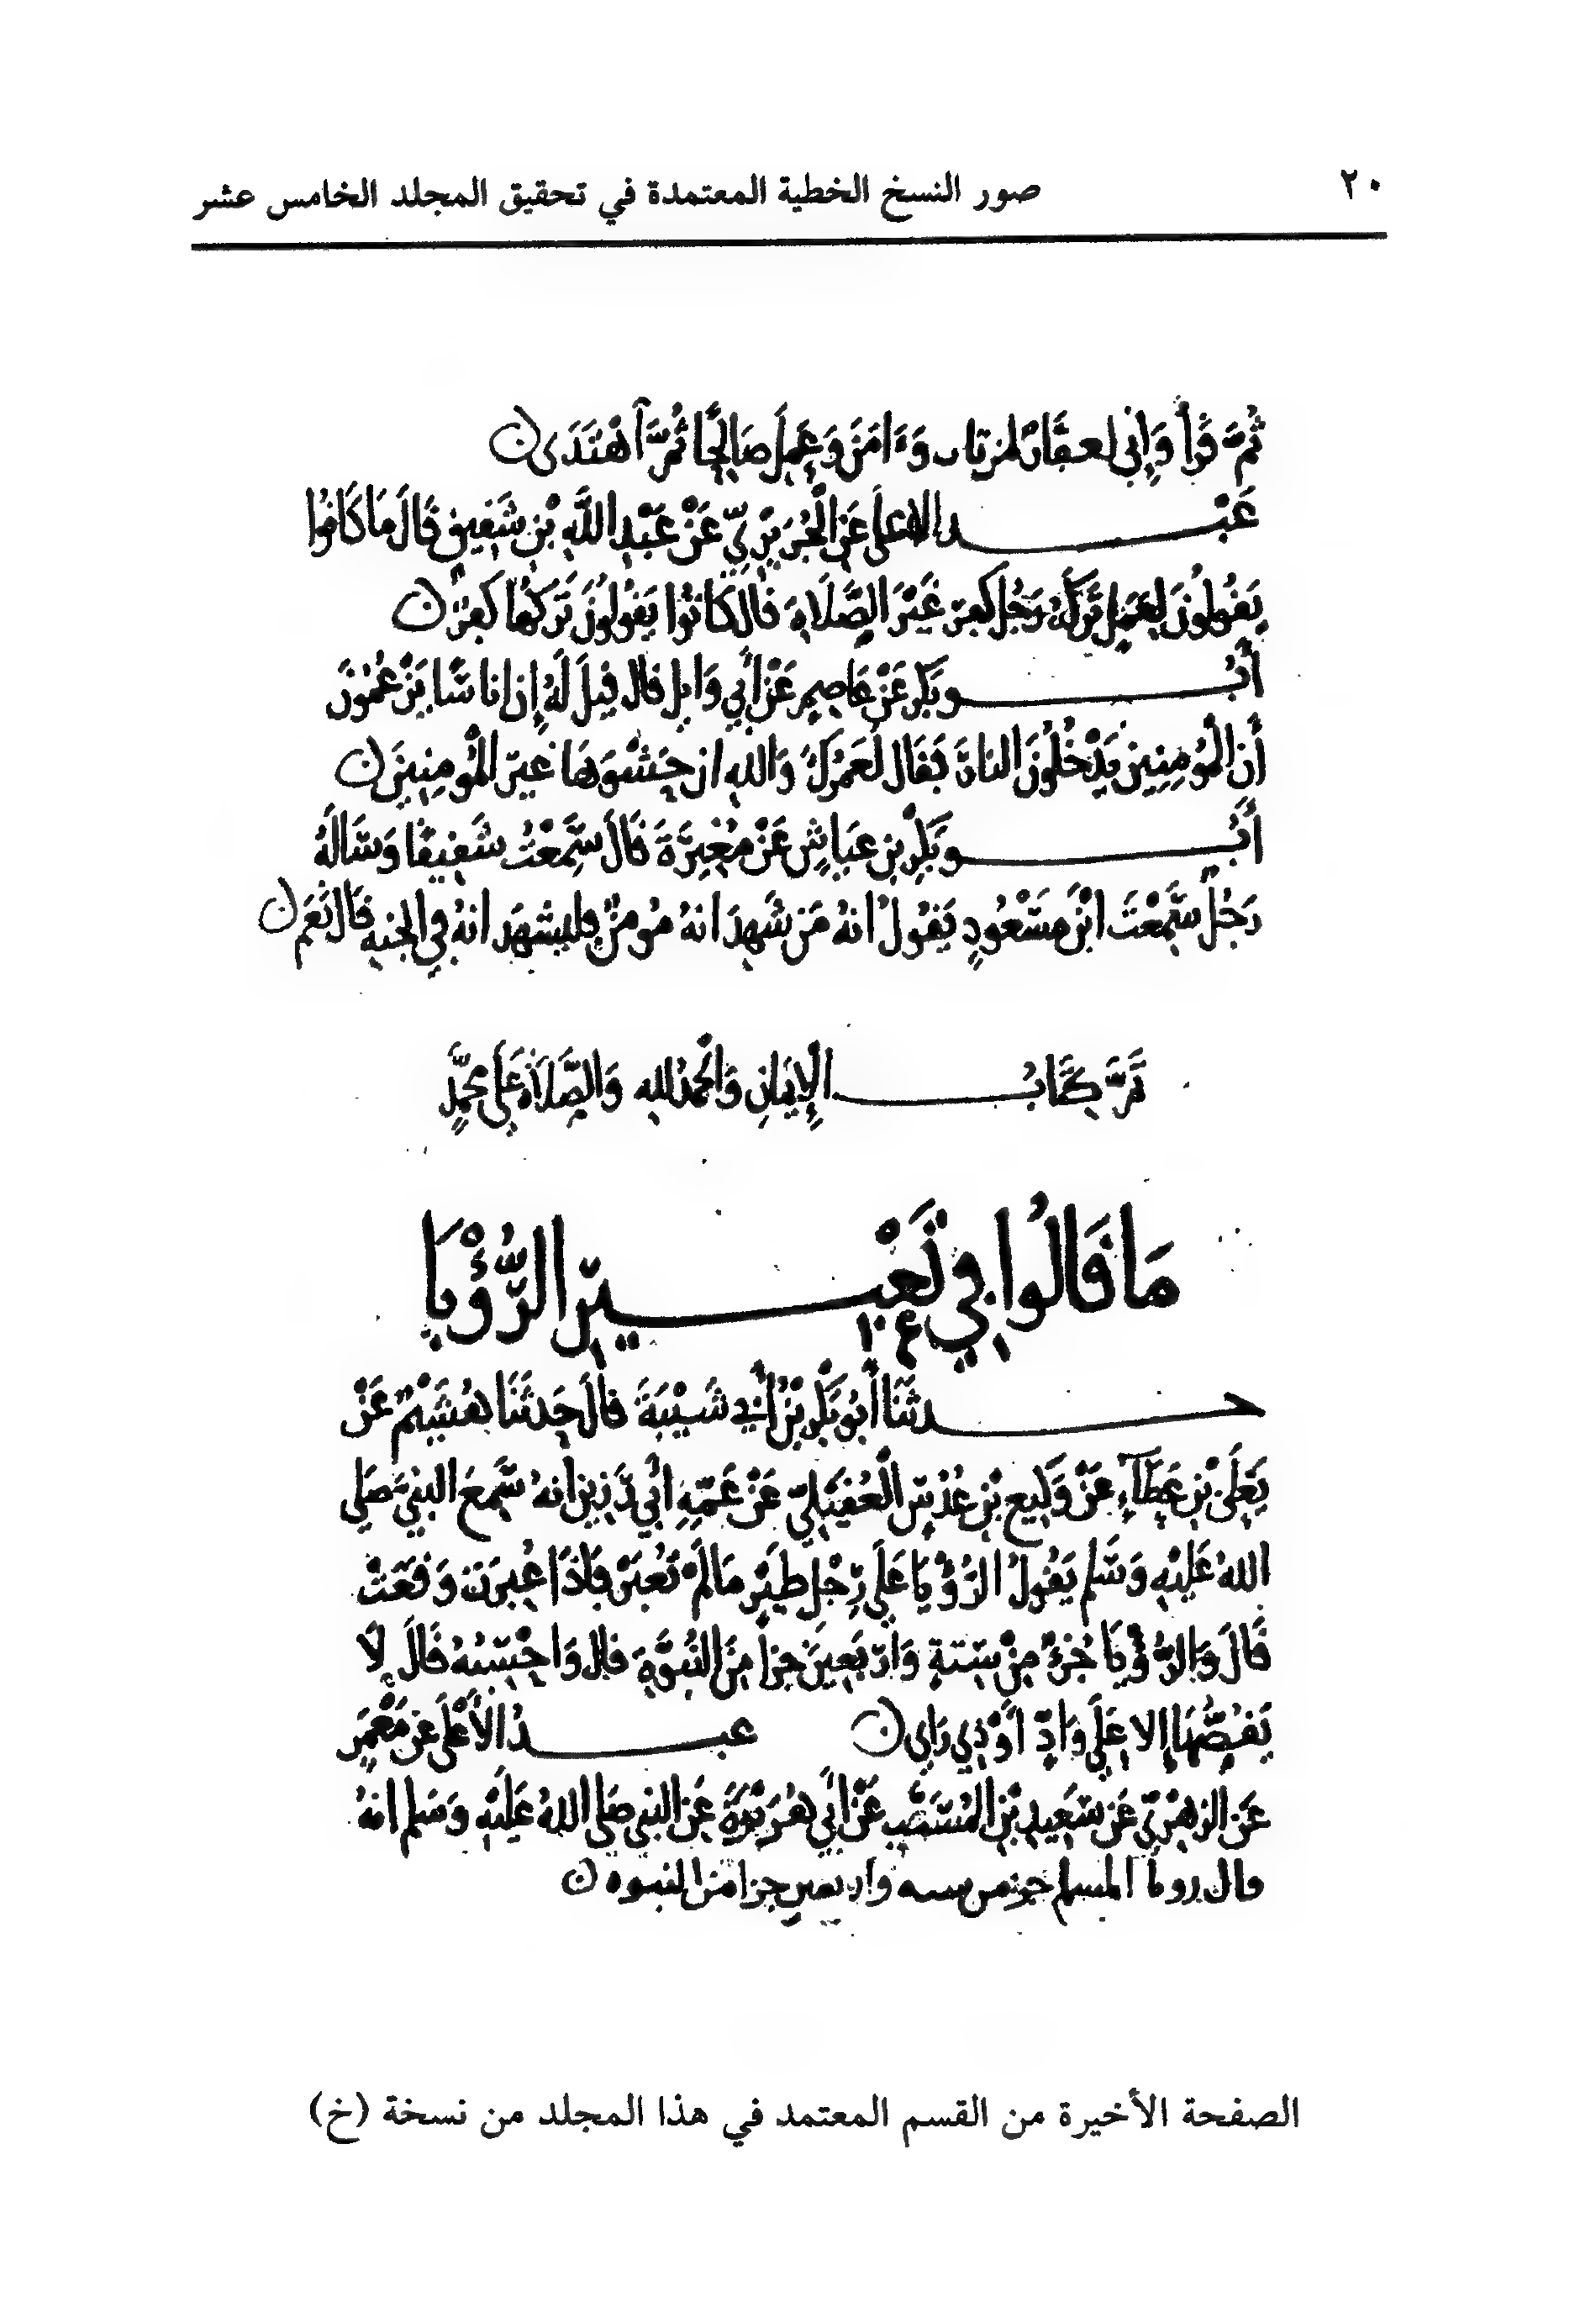 ٢٠
صور النسخ الخطية المعتمدة في تحقيق المجلد الخامس عشر
ثُمَّ قَرَأَ وَإِنِّي لغفَّارٌ لمن تاب وَءَامَنَ وَعَمِلَ صَالِحًا ثُمَّ آهْتَدَى ن
عَبْد الاعلى عَنِ الْجُرَيْرِيِّ عَنْ عَبْدِ اللَّهِ بْنِ شَقِيقٍ قَالَ مَا كَانُوا
يَقُولُونَ لِعَمَلٍ تَرَكَهُ رَجُلٌ كفرٌ غَيْرَ الصَّلَاةِ قال كَانُوا يَقُولُونَ تَرْكُهَا كُفرٌ ن
أَبُو بَكرٍ عَنْ عَاصِمٍ عَنْ أَبِي وَايِلٍ قال قِيلَ لَهُ إِن اناسًا يَزْعُمُونَ
أَنَّ الْمُؤْمِنِينَ يَدْخُلُونَ النارَ فَقَالَ لَعَمْرُكَ وَاللهِ ان حَشْوَهَا غيرُ الْمُؤْمِنِينَ ن
أَبُو بَكْرِ بن عَيَاشٍ عَنْ مُغِيرَةَ قَالَ سَمِعْتُ شَقِيقًا وَسَالَهُ
رَجُلٌ سَمِعْتَ ابْنَ مَسْعُودٍ يَقُولُ انهُ مَن شَهِدَ انهُ مُومِنٌ فليشهَد انهُ فِي الجنه قَالَ نَعَم ن
تَمَّ كِتَابُ الإِيمَانِ وَالْحَمْدُ للهِ وَالصَّلَاةُ عَلَى مُحَمَّدٍ
مَا قَالُوا فِي تَعْبِيرِ الرُّؤْيَا
حدثَنَا أَبُو بَكْرِ بْنُ أَبِي شَيْبَةَ قالَ حَدثَنَا هُشَيْمٌ عَنْ
يَعْلَى بْنِ عَطَآءٍ عَنْ وَكِيعِ بْنِ عُدُسٍ الْعُقَيْلِيِّ عَنْ عَمِّهِ أَبِي رَزِينٍ انهُ سَمِعَ النبيَّ صَلى
اللهُ عَلَيْهِ وَسَلم يَقُولُ الرُّؤْيَا عَلَى رِجْلِ طَيْرٍ مَا لَمْ تُعْبَرْ فَإذَا عُبِرَت وَقَعَتْ
قَالَ وَالرُّؤْيَا جُزْءٌ مِنْ سِتةٍ وَارْبَعِينَ جزأ مِنَ النُّبُوَّةِ قال وَاحْسِبُهُ قَالَ لا
يَقُصُّهَا إلا عَلَى وَادٍّ أوْ ذِي رَاي ن عبدُ الأعْلَى عن مَعْمَرٍ
عَنِ الزهْرِيِّ عَن سَعِيدِ بْنِ الْمُسَيّب عَنْ أَبِي هُرَيْرَةَ عَنِ النبي صَلى اللهُ عَلَيْهِ وَسَلم انهُ
قال رويا المسلم جزء من سته واربعين جزا من النبوه ن
الصفحة الأخيرة من القسم المعتمد في هذا المجلد من نسخة (خ)